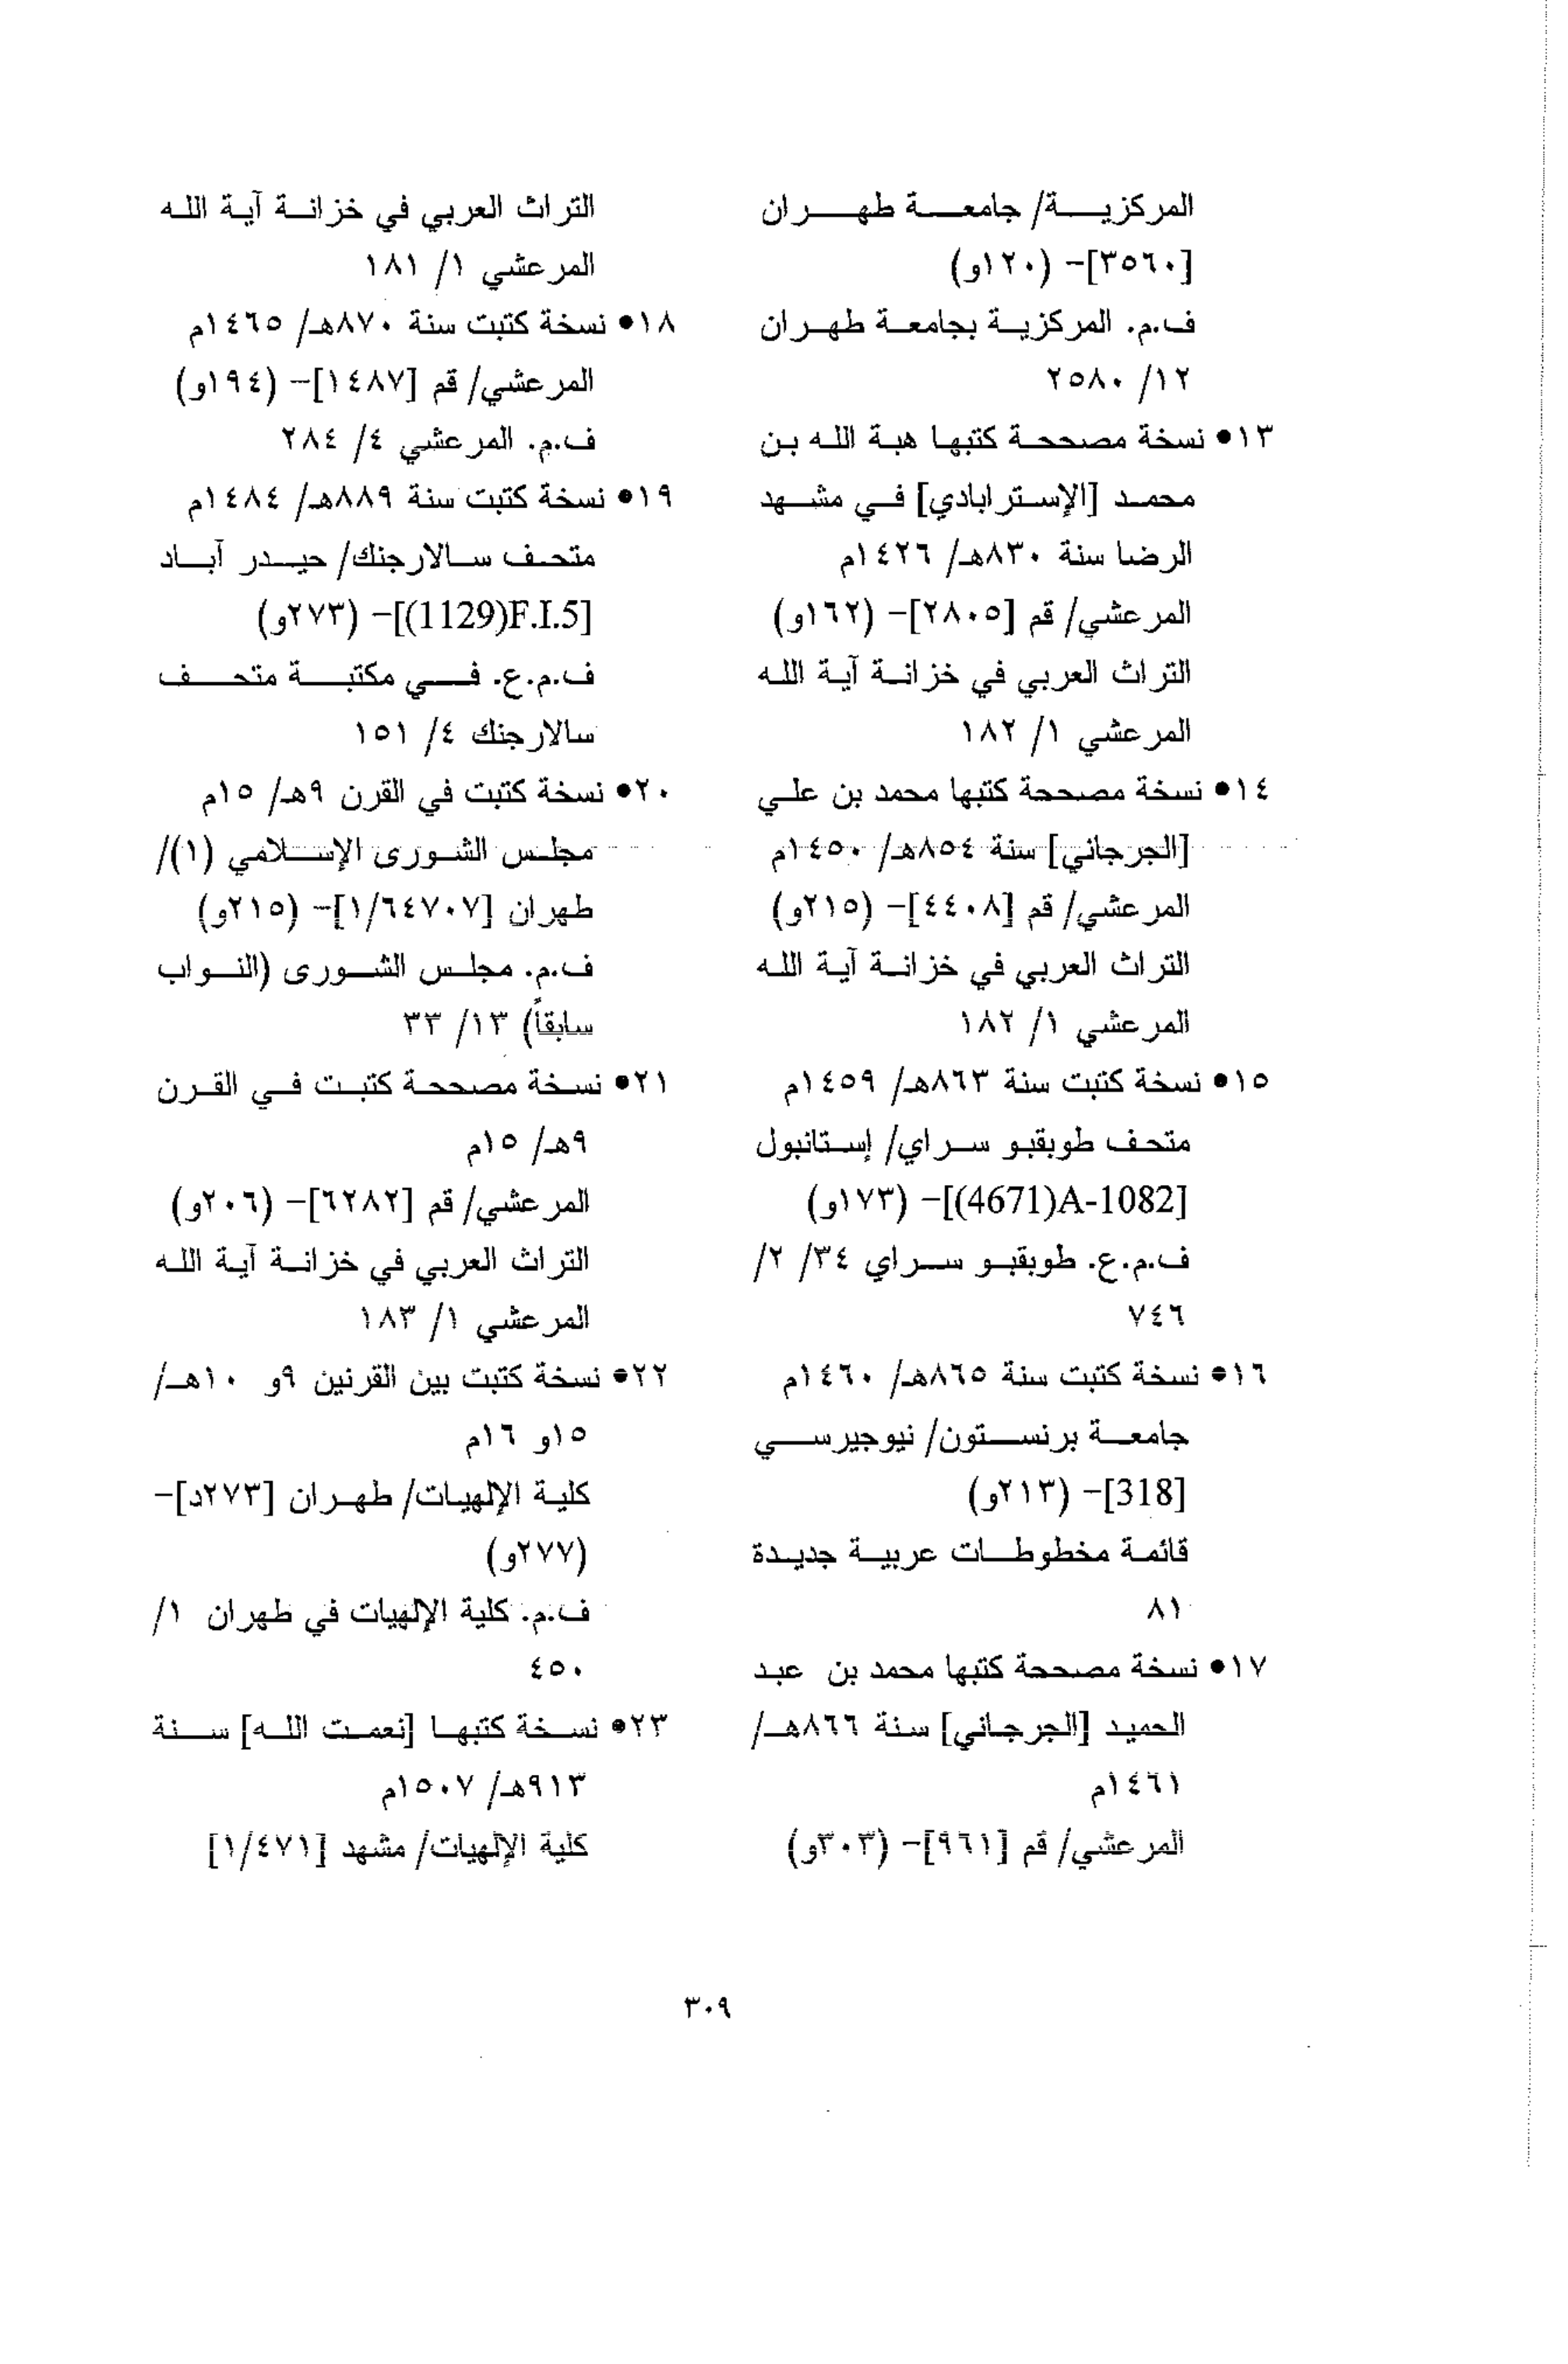 المركزية/ جامعة طهران
[٣٥٦٠]- (١٢٠و)
ف.م. المركزية بجامعة طهران
١٢/ ٢٥٨٠
١٣• نسخة مصححة كتبها هبة الله بن
محمد [الإسترابادي] في مشهد
الرضا سنة ٨٣٠هـ/ ١٤٢٦م
المرعشي/ قم [٢٨٠٥]- (١٦٢و)
التراث العربي في خزانة آية الله
المرعشي ١/ ١٨٢
١٤• نسخة مصححة كتبها محمد بن علي
[الجرجاني] سنة ٨٥٤هـ/ ١٤٥٠م
المرعشي/ قم [٤٤٠٨]- (٢١٥و)
التراث العربي في خزانة آية الله
المرعشي ١/ ١٨٢
١٥• نسخة كتبت سنة ٨٦٣هـ/ ١٤٥٩م
متحف طوبقبو سراي/ إستانبول
[(4671)A-1082]- (١٧٣و)
ف.م.ع. طوبقبو سراي ٣٤/ ٢/
٧٤٦
١٦• نسخة كتبت سنة ٨٦٥هـ/ ١٤٦٠م
جامعة برنستون/ نيوجيرسي
[318]- (٢١٣و)
قائمة مخطوطات عربية جديدة
٨١
١٧• نسخة مصححة كتبها محمد بن عبد
الحميد [الجرجاني] سنة ٨٦٦هـ/
١٤٦١م
المرعشي/ قم [٩٦١]- (٣٠٣و)
التراث العربي في خزانة آية الله
المرعشي ١/ ١٨١
١٨• نسخة كتبت سنة ٨٧٠هـ/ ١٤٦٥م
المرعشي/ قم [١٤٨٧]- (١٩٤و)
ف.م. المرعشي ٤/ ٢٨٤
١٩• نسخة كتبت سنة ٨٨٩هـ/ ١٤٨٤م
متحف سالارجنك/ حيدر آباد
[(1129)F.I.5]- (٢٧٣و)
ف.م.ع. في مكتبة متحف
سالارجنك ٤/ ١٥١
٢٠• نسخة كتبت في القرن ٩هـ/ ١٥م
مجلس الشورى الإسلامي (١)/
طهران [١/٦٤٧٠٧]- (٢١٥و)
ف.م. مجلس الشورى (النواب
سابقاً) ١٣/ ٣٣
٢١• نسخة مصححة كتبت في القرن
٩هـ/ ١٥م
المرعشي/ قم [٦٢٨٢]- (٢٠٦و)
التراث العربي في خزانة آية الله
المرعشي ١/ ١٨٣
٢٢• نسخة كتبت بين القرنين ٩و ١٠هـ/
١٥و ١٦م
كلية الإلهيات/ طهران [٢٧٣د]-
(٢٧٧و)
ف.م. كلية الإلهيات في طهران ١/
٤٥٠
٢٣• نسخة كتبها [نعمت الله] سنة
٩١٣هـ/ ١٥٠٧م
كلية الإلهيات/ مشهد [١/٤٧١]
٣٠٩